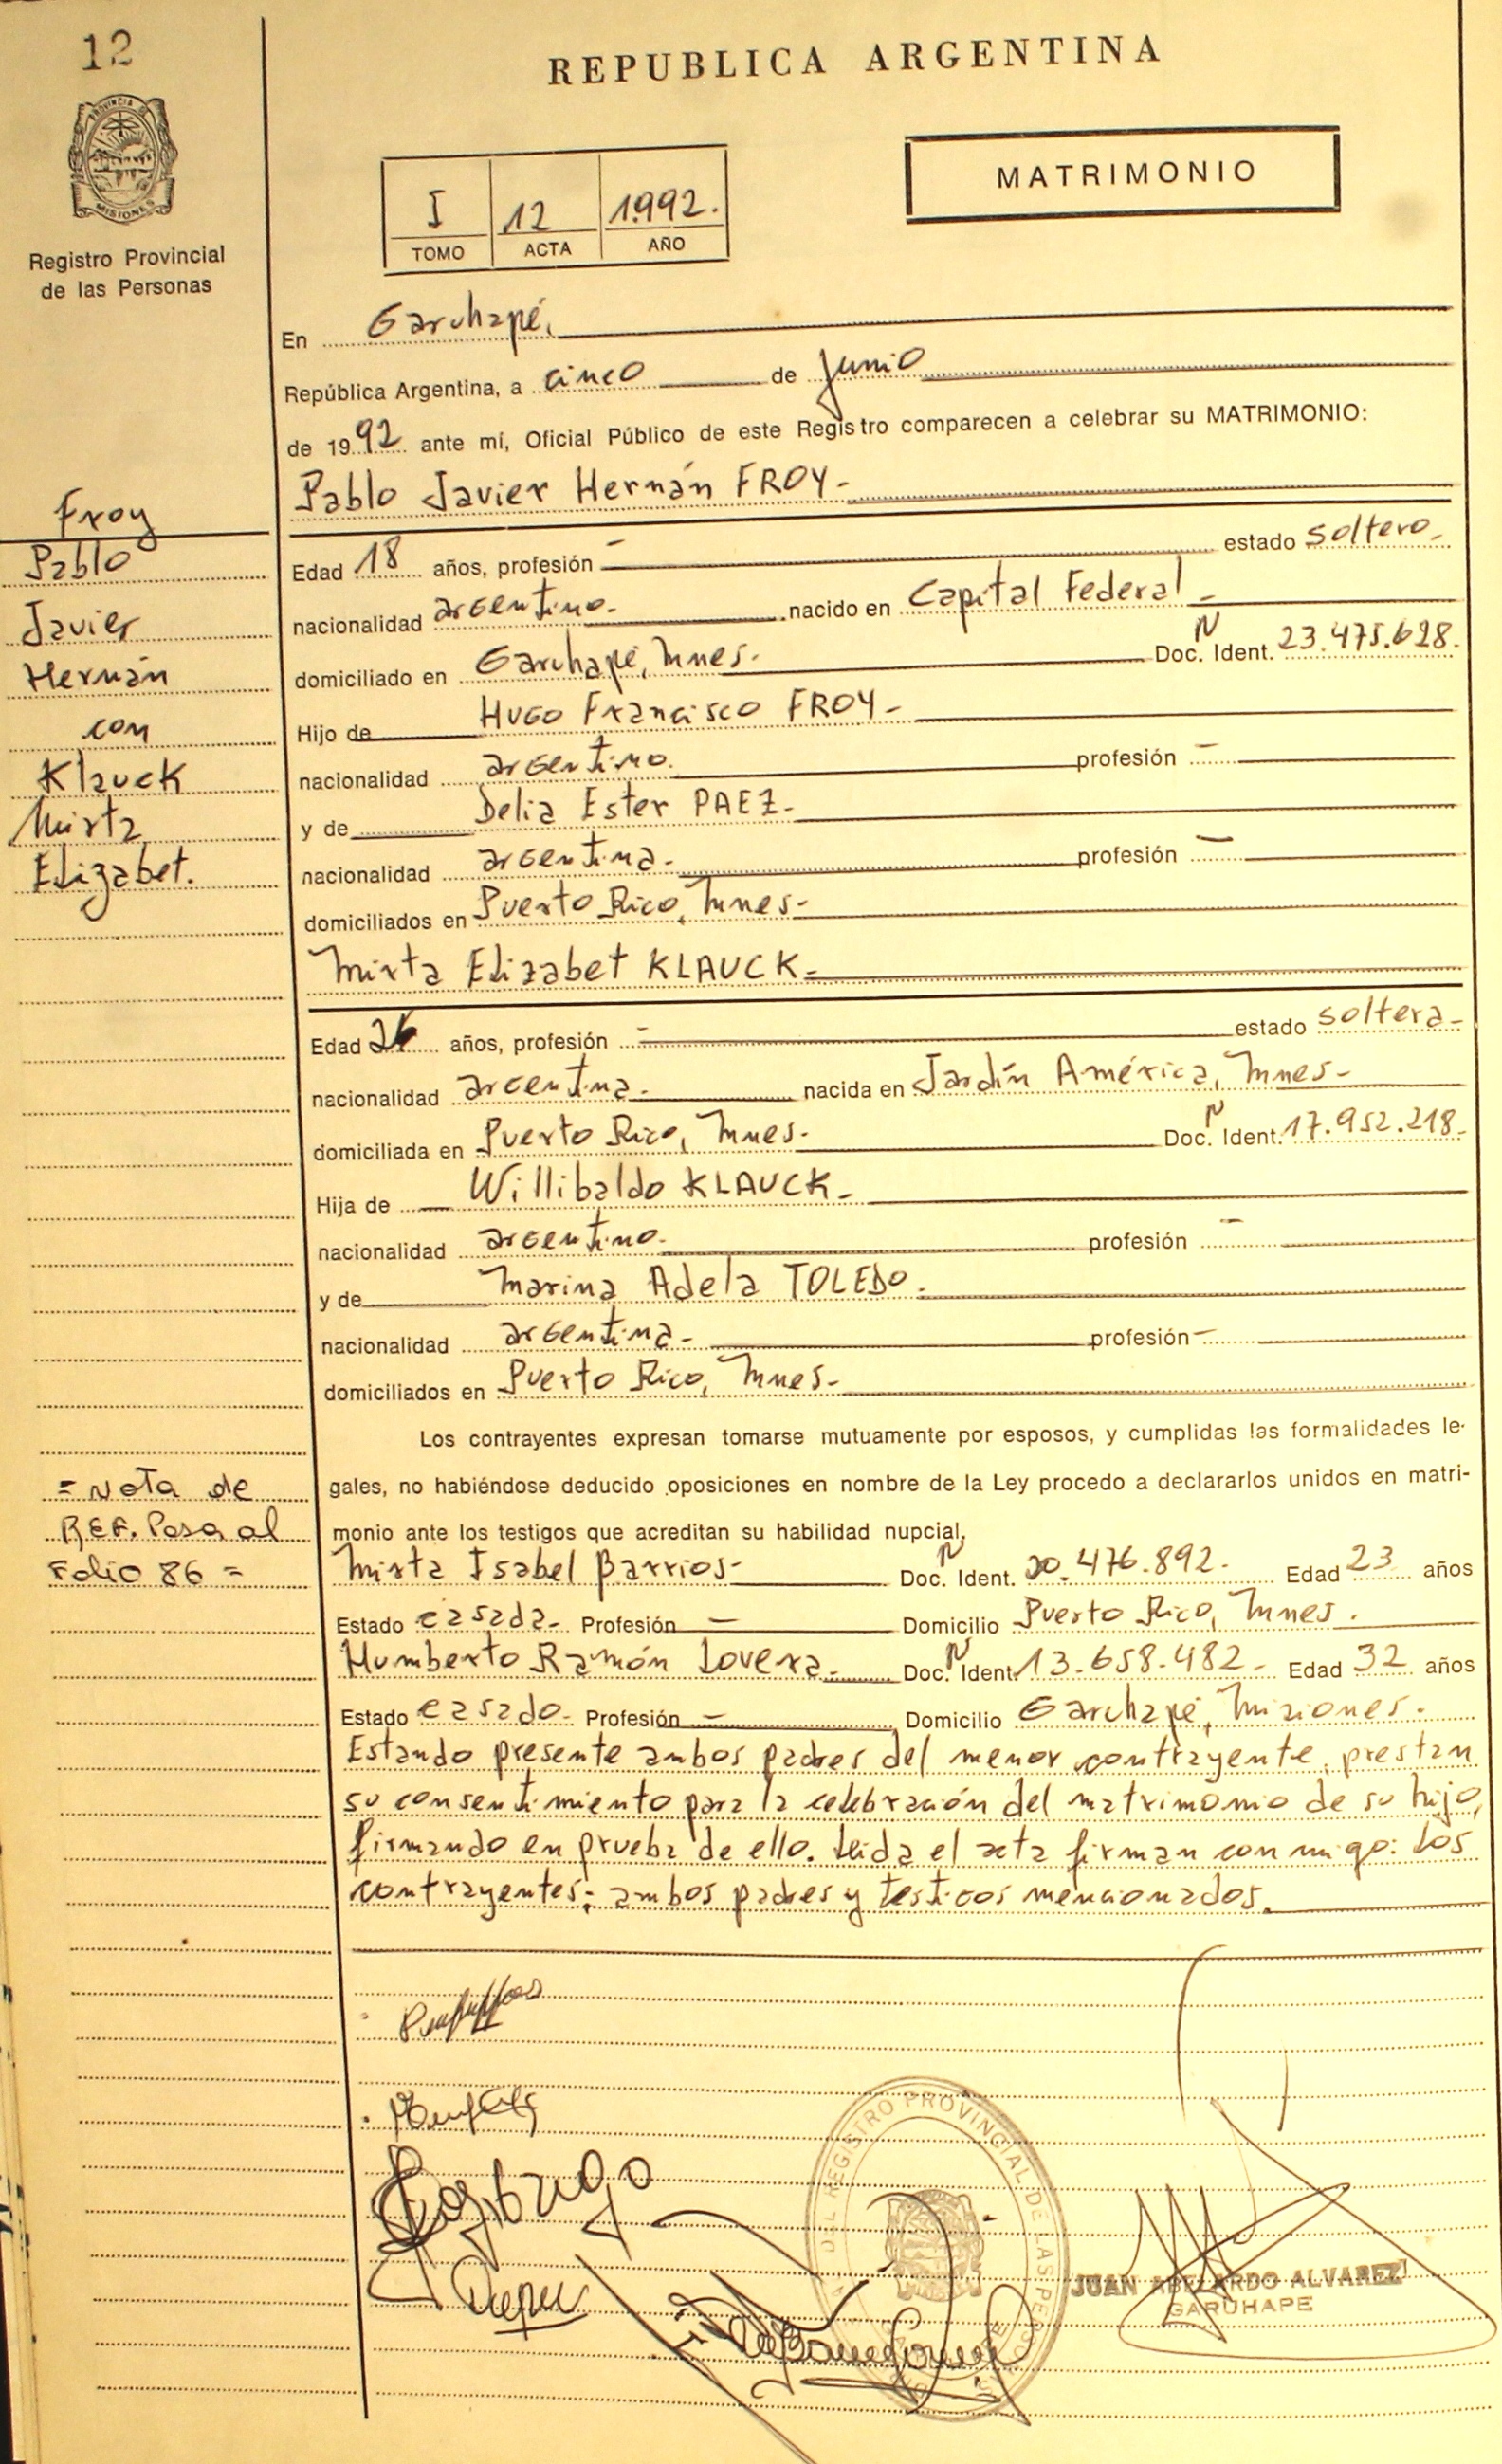 12
REPUBLICA ARGENTINA
PROVINCIA DE
MISIONES
Registro Provincial
de las Personas
I 12 1.992.
TOMO ACTA AÑO
MATRIMONIO
En Garuhapé,
República Argentina, a cinco de Junio
de 1992 ante mí, Oficial Público de este Registro comparecen a celebrar su MATRIMONIO:
Pablo Javier Hernán FROY-
Froy
Pablo
Javier
Hernán
con
Klauck
Mirta
Elizabet.
Edad 18 años, profesión - estado soltero.
nacionalidad argentino. nacido en Capital Federal-
domiciliado en Garuhapé, Mnes. Doc. N Ident. 23.475.628.
Hijo de Hugo Francisco FROY-
nacionalidad argentino. profesión -
y de Delia Ester PAEZ-
nacionalidad argentina- profesión -
domiciliados en Puerto Rico, Mnes-
Mirta Elizabet KLAUCK-
Edad 26 años, profesión - estado soltera-
nacionalidad argentina- nacida en Jardín América, Mnes-
domiciliada en Puerto Rico, Mnes. Doc. N Ident. 17.952.218-
Hija de Willibaldo KLAUCK-
nacionalidad argentino- profesión -
y de Marina Adela TOLEDO.
nacionalidad argentina- profesión -
domiciliados en Puerto Rico, Mnes-
Los contrayentes expresan tomarse mutuamente por esposos, y cumplidas las formalidades le-
gales, no habiéndose deducido oposiciones en nombre de la Ley procedo a declararlos unidos en matri-
monio ante los testigos que acreditan su habilidad nupcial.
= Nota de
REF. Pasa al
Folio 86 =
Mirta Isabel Barrios- Doc. N Ident. 20.476.892- Edad 23 años
Estado casada- Profesión - Domicilio Puerto Rico, Mnes.
Humberto Ramón Lovera- Doc. N Ident. 13.658.482- Edad 32 años
Estado casado- Profesión - Domicilio Garuhapé, Misiones.
Estando presente ambos padres del menor contrayente, prestan
su consentimiento para la celebración del matrimonio de su hijo,
firmando en prueba de ello. Leida el acta firman conmigo: Los
contrayentes; ambos padres y testigos mencionados.
REGISTRO PROVINCIAL DE LAS PERSONAS
JUAN ABELARDO ALVAREZ
GARUHAPE